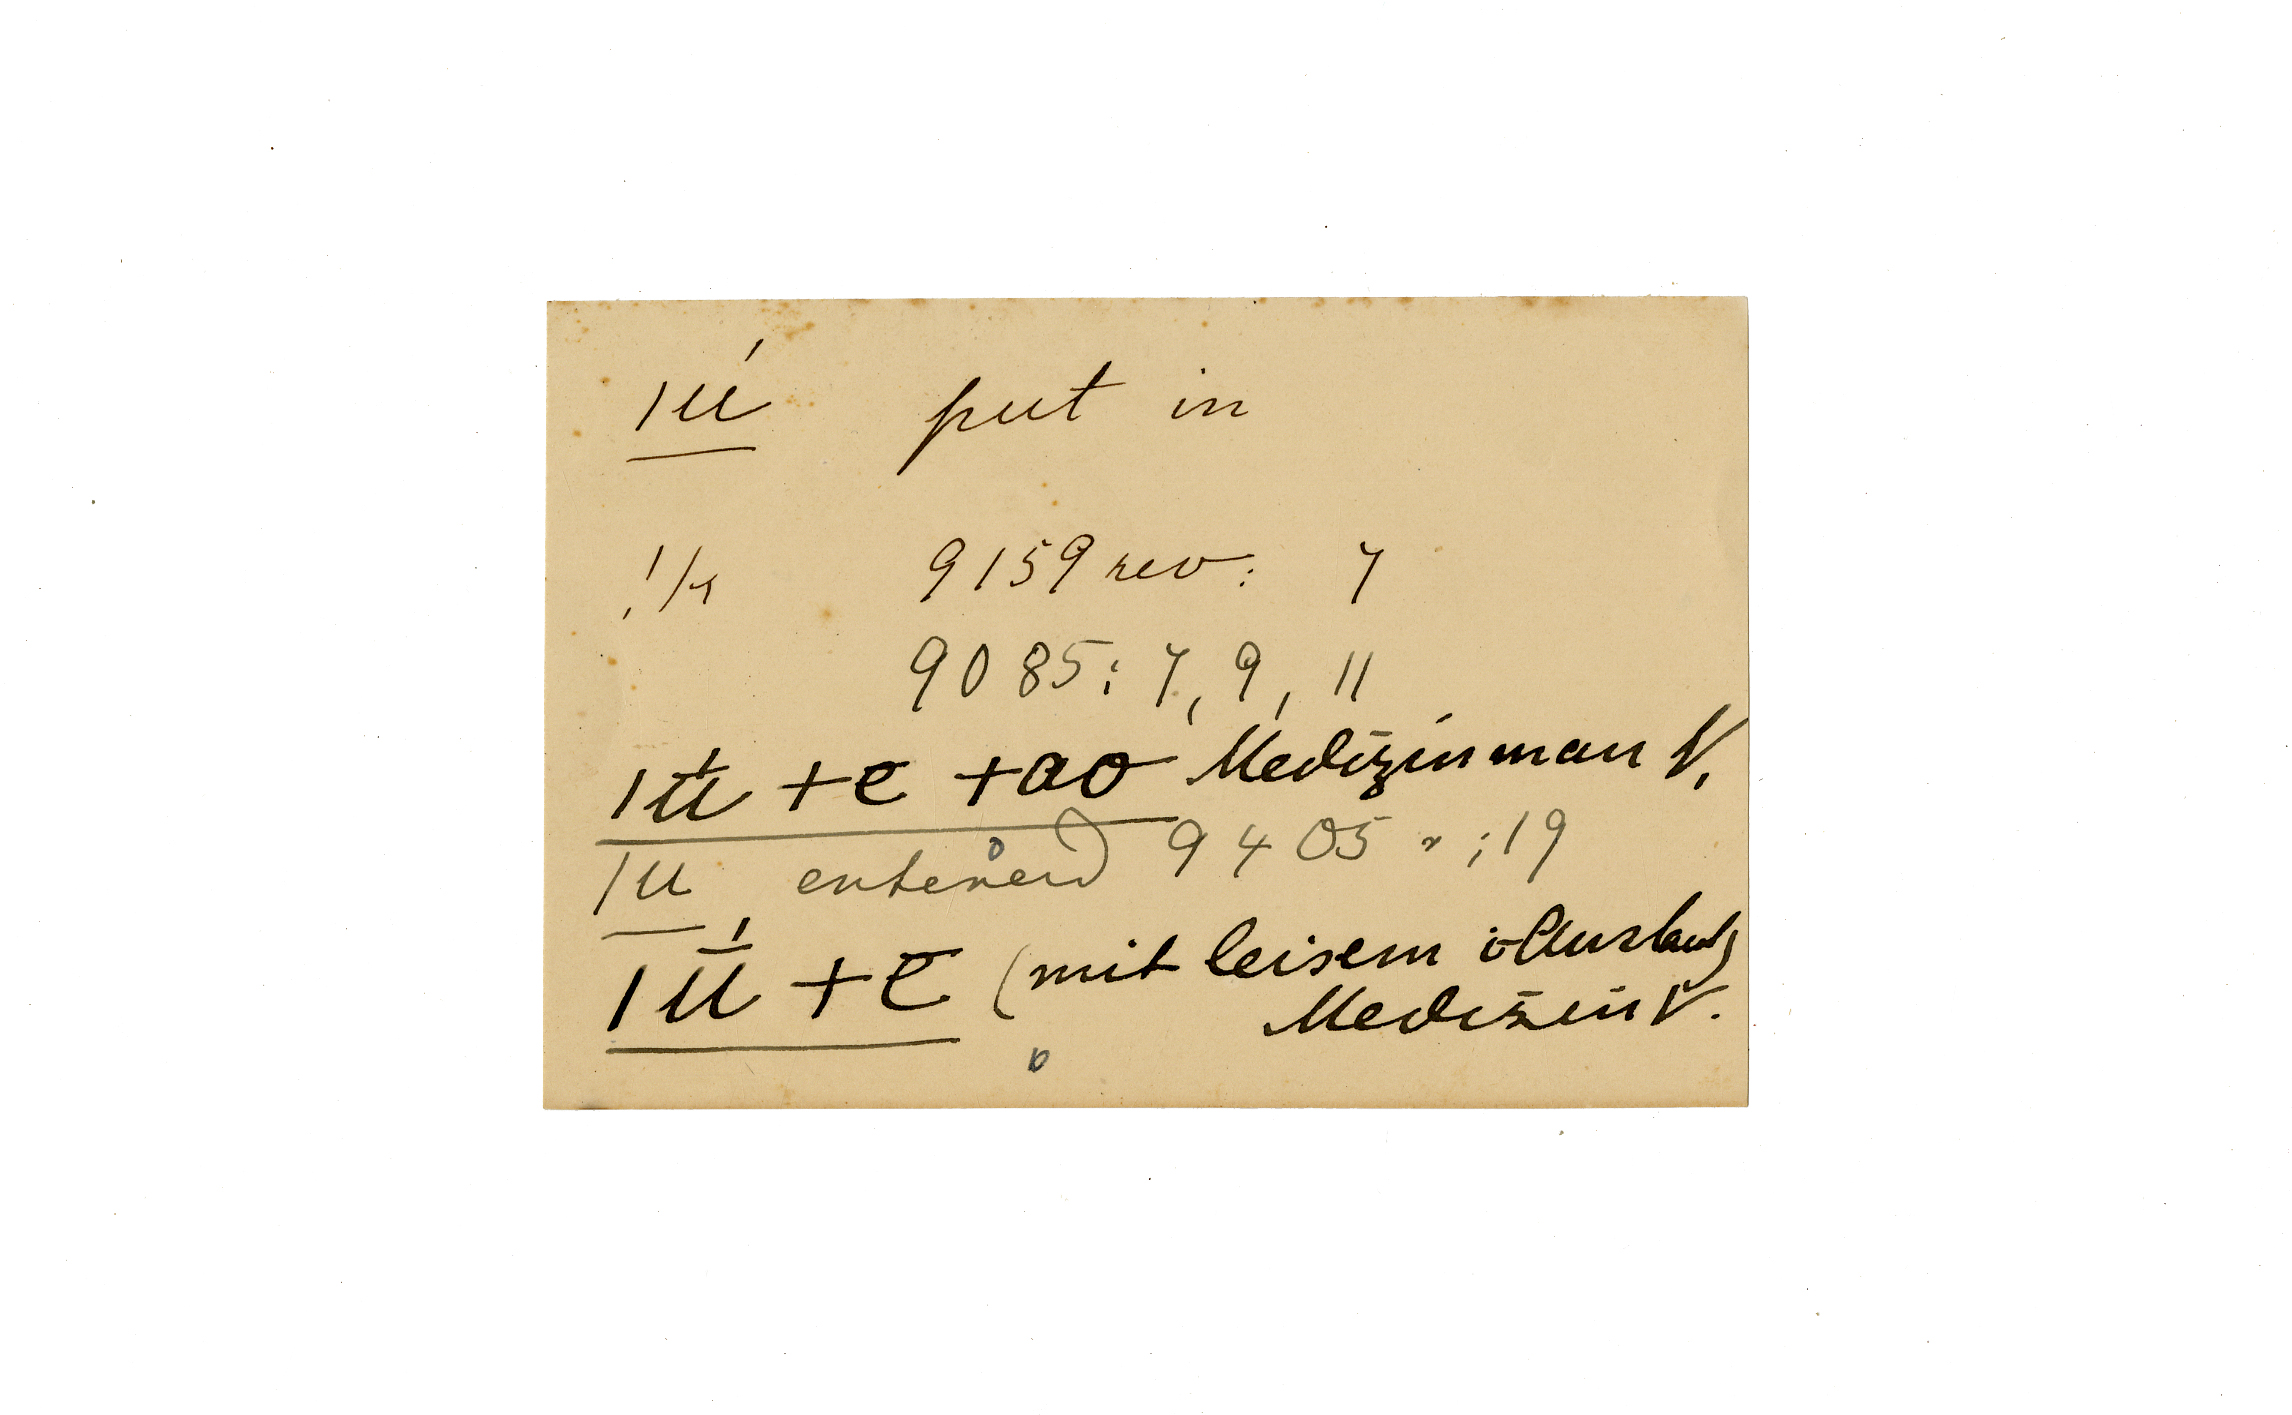 |ú put in
9159 rev: 7
9085: 7, 9, 11
|ū́ +e̅ +ao Medizinman V.
|u entered 9405 r; 19
|ū́ +e̅ (mit leisem
Medizin V.